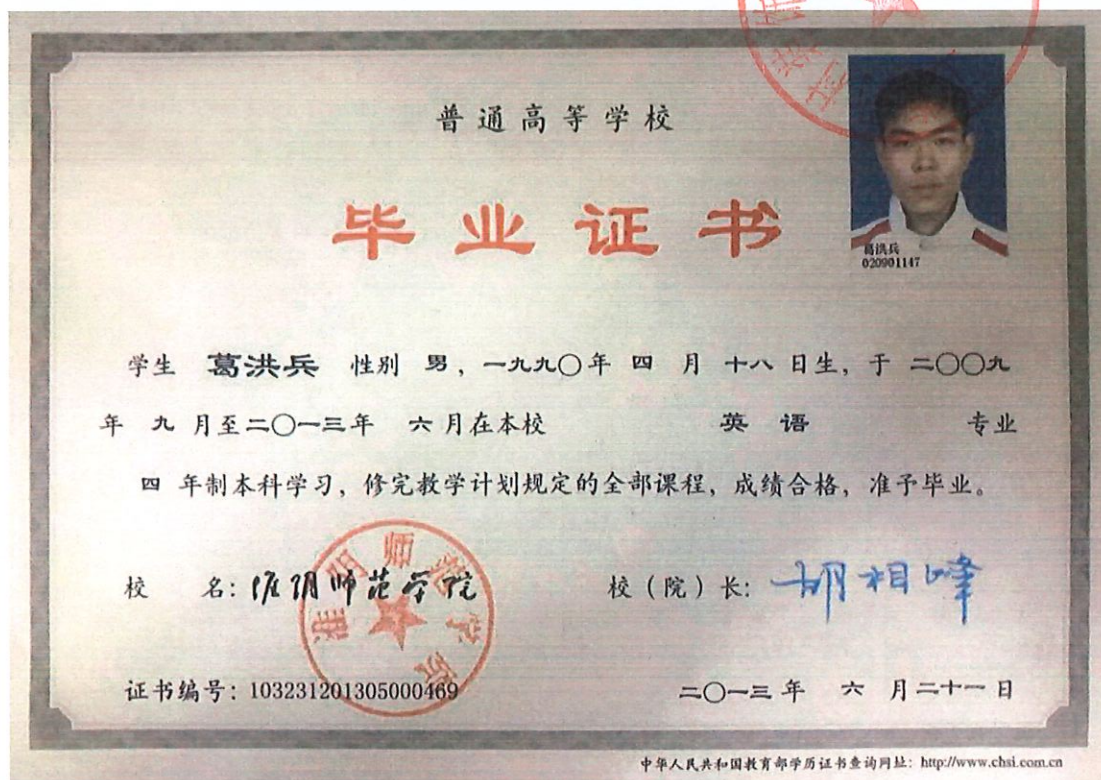 普通高等学校
毕业证书
葛洪兵
020901147
学生 葛洪兵 性别 男，一九九〇年 四 月 十八 日生，于 二〇〇九
年 九 月至二〇一三年 六 月在本校 英 语 专业
四 年制本科学习，修完教学计划规定的全部课程，成绩合格，准予毕业。
校 名：淮阴师范学院
校（院）长：胡相峰
淮阴师范学院
证书编号：103231201305000469
二〇一三 年 六 月二十一 日
中华人民共和国教育部学历证书查询网址：http://www.chsi.com.cn